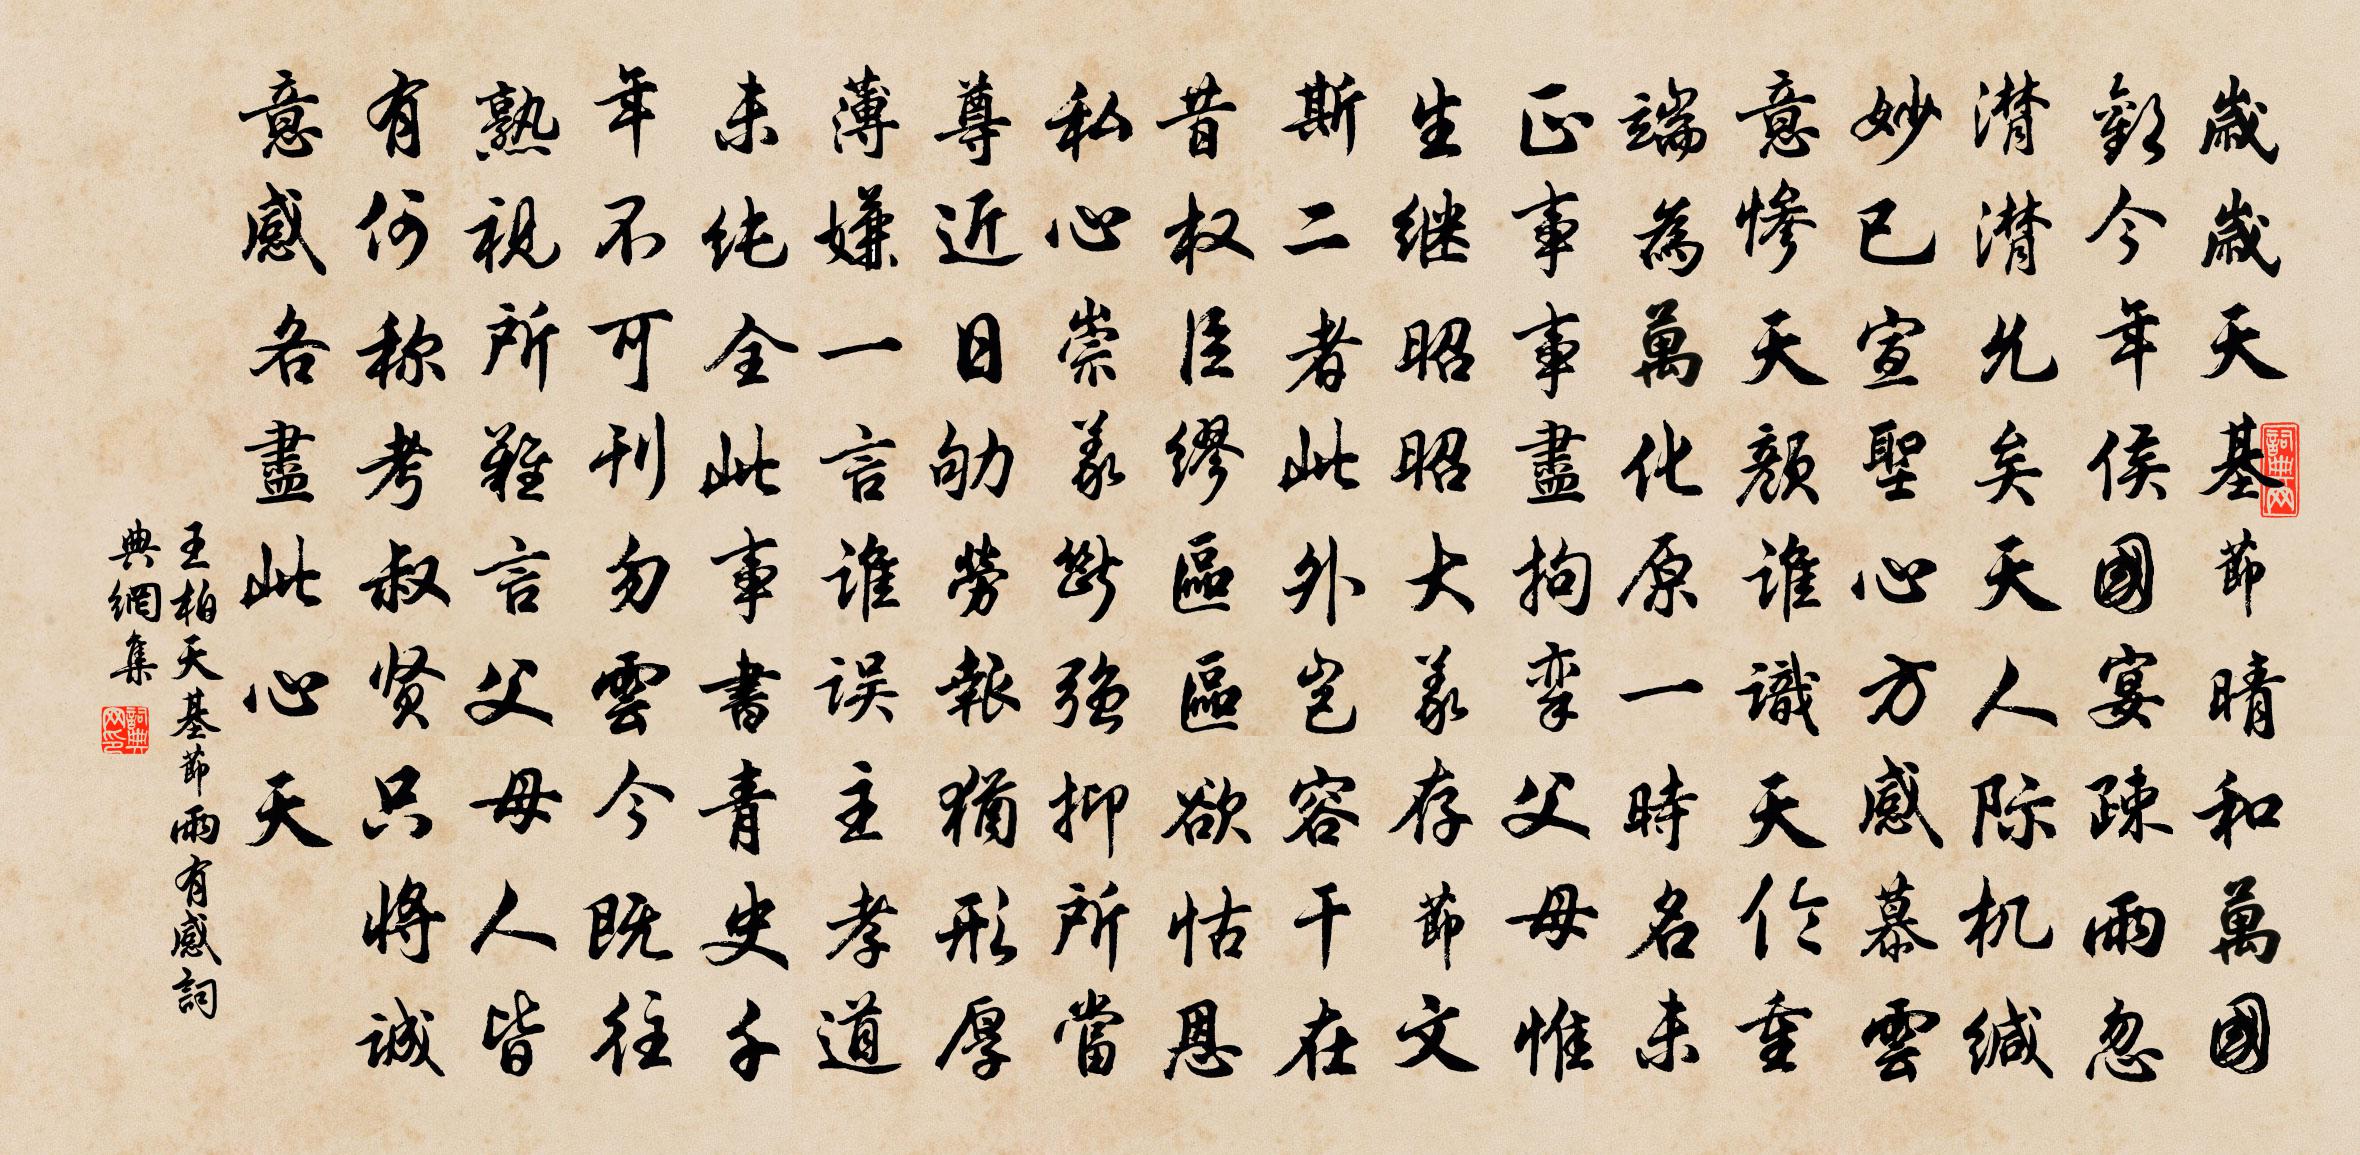 歲歲天基節晴和萬國
歡今年侯國宴疎雨忽
潸潸允矣天人际机缄
妙已宣聖心方感慕雲
意慘天顏谁識天伦重
端為萬化原一時名未
正事事盡拘挛父母惟
生继昭昭大義存節文
斯二者此外岂容干在
昔权臣缪區區欲怙恩
私心崇義斷强抑所當
尊近日劬勞報猶形厚
薄嫌一言谁误主孝道
未纯全此事書青史千
年不可刊勿雲今既往
熟視所難言父母人皆
有何称考叔贤只將誠
意感各盡此心天
王柏天基節雨有感詞
典網集
詞典网
詞典网印